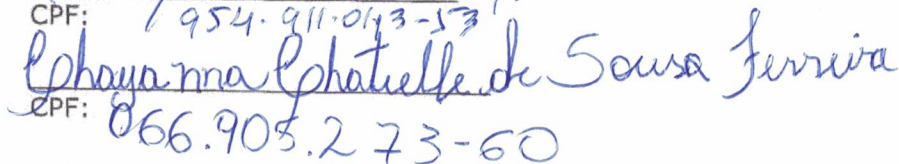 CPF: 954.911.013-53
Chayanna Chatielle de Sousa Ferreira
CPF: 066.905.273-60